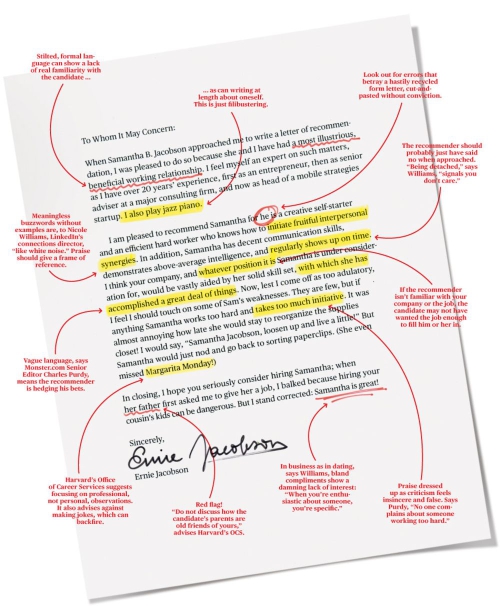 Stilted, formal lan-
guage can show a lack
of real familiarity with
the candidate ...
... as can writing at
length about oneself.
This is just filibustering.
Look out for errors that
betray a hastily recycled
form letter, cut-and-
pasted without conviction.
The recommender should
probably just have said
no when approached.
"Being detached," says
Williams, "signals you
don't care."
Meaningless
buzzwords without
examples are, to Nicole
Williams, LinkedIn's
connections director,
"like white noise." Praise
should give a frame of
reference.
To Whom It May Concern:
When Samantha B. Jacobson approached me to write a letter of recommen-
dation, I was pleased to do so because she and I have had a most illustrious,
beneficial working relationship. I feel myself an expert on such matters,
as I have over 20 years' experience, first as an entrepreneur, then as senior
adviser at a major consulting firm, and now as head of a mobile strategies
startup. I also play jazz piano.
I am pleased to recommend Samantha for he is a creative self-starter
and an efficient hard worker who knows how to initiate fruitful interpersonal
synergies. In addition, Samantha has decent communication skills,
demonstrates above-average intelligence, and regularly shows up on time.
I think your company, and whatever position it is Samantha is under consider-
ation for, would be vastly aided by her solid skill set, with which she has
accomplished a great deal of things. Now, lest I come off as too adulatory,
I feel I should touch on some of Sam's weaknesses. They are few, but if
anything Samantha works too hard and takes too much initiative. It was
almost annoying how late she would stay to reorganize the supplies
closet! I would say, "Samantha Jacobson, loosen up and live a little!" But
Samantha would just nod and go back to sorting paperclips. (She even
missed Margarita Monday!)
In closing, I hope you seriously consider hiring Samantha; when
her father first asked me to give her a job, I balked because hiring your
cousin's kids can be dangerous. But I stand corrected: Samantha is great!
Sincerely,
Ernie Jacobson
Ernie Jacobson
If the recommender
isn't familiar with your
company or the job, the
candidate may not have
wanted the job enough
to fill him or her in.
Vague language, says
Monster.com Senior
Editor Charles Purdy,
means the recommender
is hedging his bets.
Harvard's Office
of Career Services suggests
focusing on professional,
not personal, observations.
It also advises against
making jokes, which can
backfire.
Red flag!
"Do not discuss how the
candidate's parents are
old friends of yours,"
advises Harvard's OCS.
In business as in dating,
says Williams, bland
compliments show a
damning lack of interest:
"When you're enthu-
siastic about someone,
you're specific."
Praise dressed
up as criticism feels
insincere and false. Says
Purdy, "No one com-
plains about someone
working too hard."